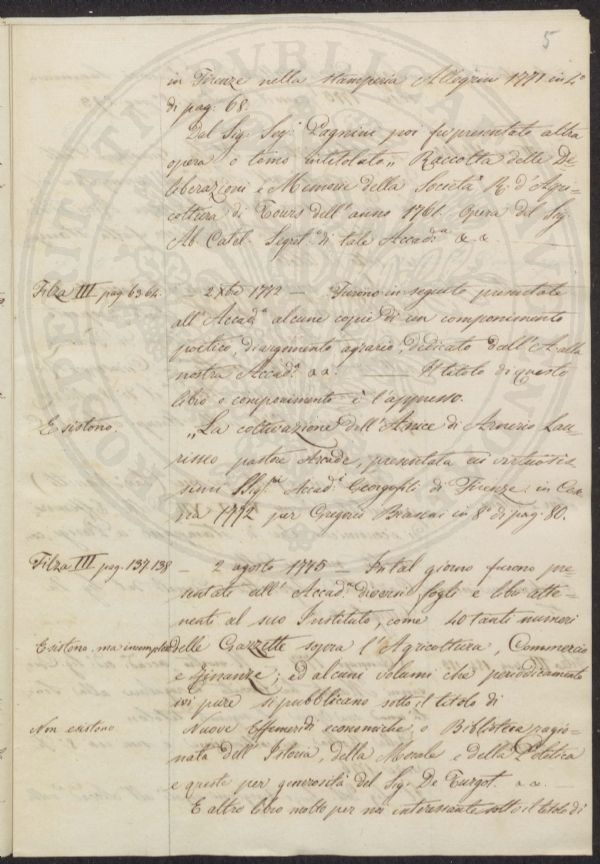 5
in Firenze nella stamperia Allegrini 1771 in 4°
di pag. 68.
Del Sig. Seg. Pagnini poi fu presentato altra
opera o tomo intitolato „ Raccolta delle De=
liberazioni e Memorie della Società R. d'Agri=
coltura di Tours dell'anno 1761. Opera del Sig.
Ab. Catel. Segret. di tale Accad.a &. &.
Filza III pag. 63. 64. — 2 Xbre 1772 — Furono in seguito presentate
all'Accad.a alcune copie di un componimento
poetico, di argomento agrario, dedicato dall'A. alla
nostra Accad.a &&. — Il titolo di questo
libro o componimento è l'appresso.
Esistono. „La coltivazione dell'Anice di Lau=
riseo pastore Arcade, presentata ai virtuosis
simi SSig.ri Accad.i Georgofili di Firenze. in Cese
na 1772 per Gregorio Biasini in 8° di pag. 80.
Filza III pag. 137. 138 — 2 agosto 1775 — In tal giorno furono pre=
sentate all'Accad.a diversi fogli e libri atte=
nenti al suo Instituto, come 40 tanti numeri
Esistono. ma incomplete delle Gazzette sopra l'Agricoltura, Commercio
e Finanze; ed alcuni volumi che periodicamente
ivi pure si pubblicano sotto il titolo di
Non esistono Nuove Effemeridi economiche, o Biblioteca ragio=
nata dell'Istoria, della Morale e della Politica
e queste per generosità del Sig. De Turgot. &&.
E altro libro molto per noi interessante sotto il titolo di